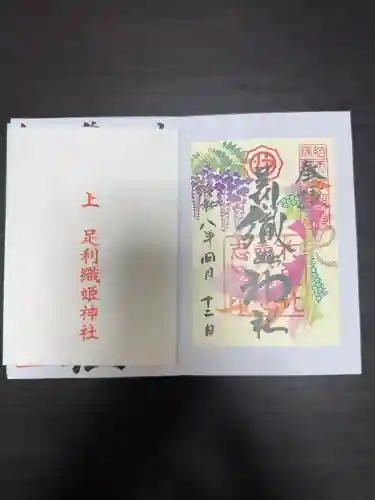 上 足利織姫神社
奉拝
足利織姫神社
令和八年四月十二日